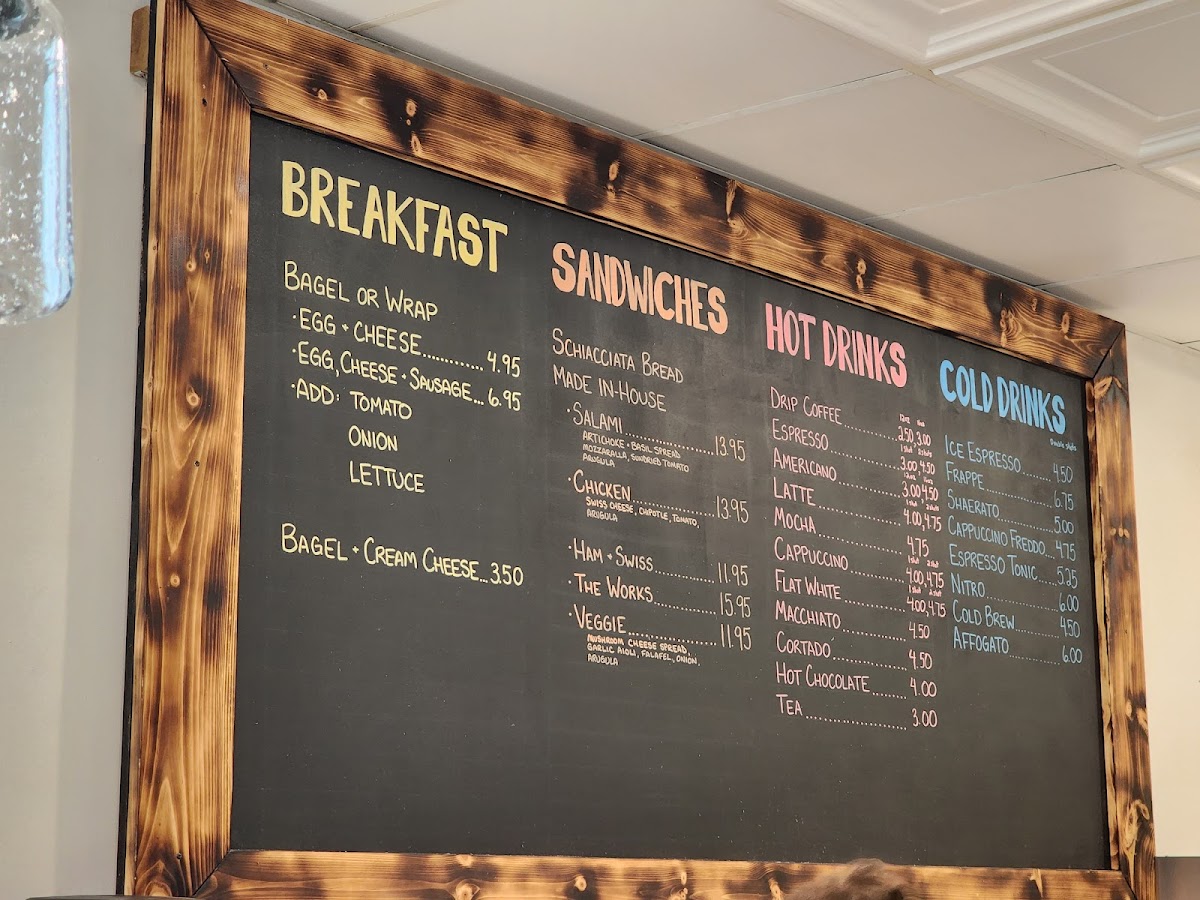 BREAKFAST
BAGEL OR WRAP
·EGG + CHEESE........... 4.95
·EGG, CHEESE + SAUSAGE... 6.95
·ADD: TOMATO
ONION
LETTUCE
BAGEL + CREAM CHEESE...3.50
SANDWICHES
SCHIACCIATA BREAD
MADE IN-HOUSE
·SALAMI..................13.95
ARTICHOKE + BASIL SPREAD
MOZZARALLA, SUNDRIED TOMATO
ARUGULA
·CHICKEN.................13.95
SWISS CHEESE, CHIPOTLE, TOMATO,
ARUGULA
·HAM + SWISS..............11.95
·THE WORKS..............15.95
·VEGGIE...................11.95
MUSHROOM CHEESE SPREAD,
GARLIC AIOLI, FALAFEL, ONION,
ARUGULA
HOT DRINKS
DRIP COFFEE............2.50, 3.00
1 shot 2 shots
ESPRESSO................3.00, 4.50
AMERICANO..............3.00 4.50
1 shot 2 shots
LATTE....................4.00, 4.75
MOCHA....................4.75
1 shot 2 shots
CAPPUCCINO............4.00, 4.75
1 shot 2 shots
FLAT WHITE.............4.00, 4.75
MACCHIATO..............4.50
CORTADO................4.50
HOT CHOCOLATE........4.00
TEA......................3.00
COLD DRINKS
Double shots
ICE ESPRESSO.......4.50
FRAPPE...............6.75
SHAERATO............5.00
CAPPUCCINO FREDDO...4.75
ESPRESSO TONIC.....5.25
NITRO................6.00
COLD BREW...........4.50
AFFOGATO............6.00